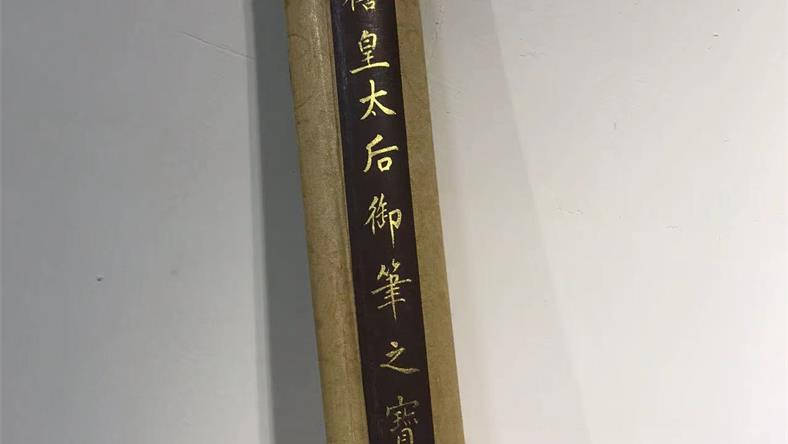 皇太后御筆之寶